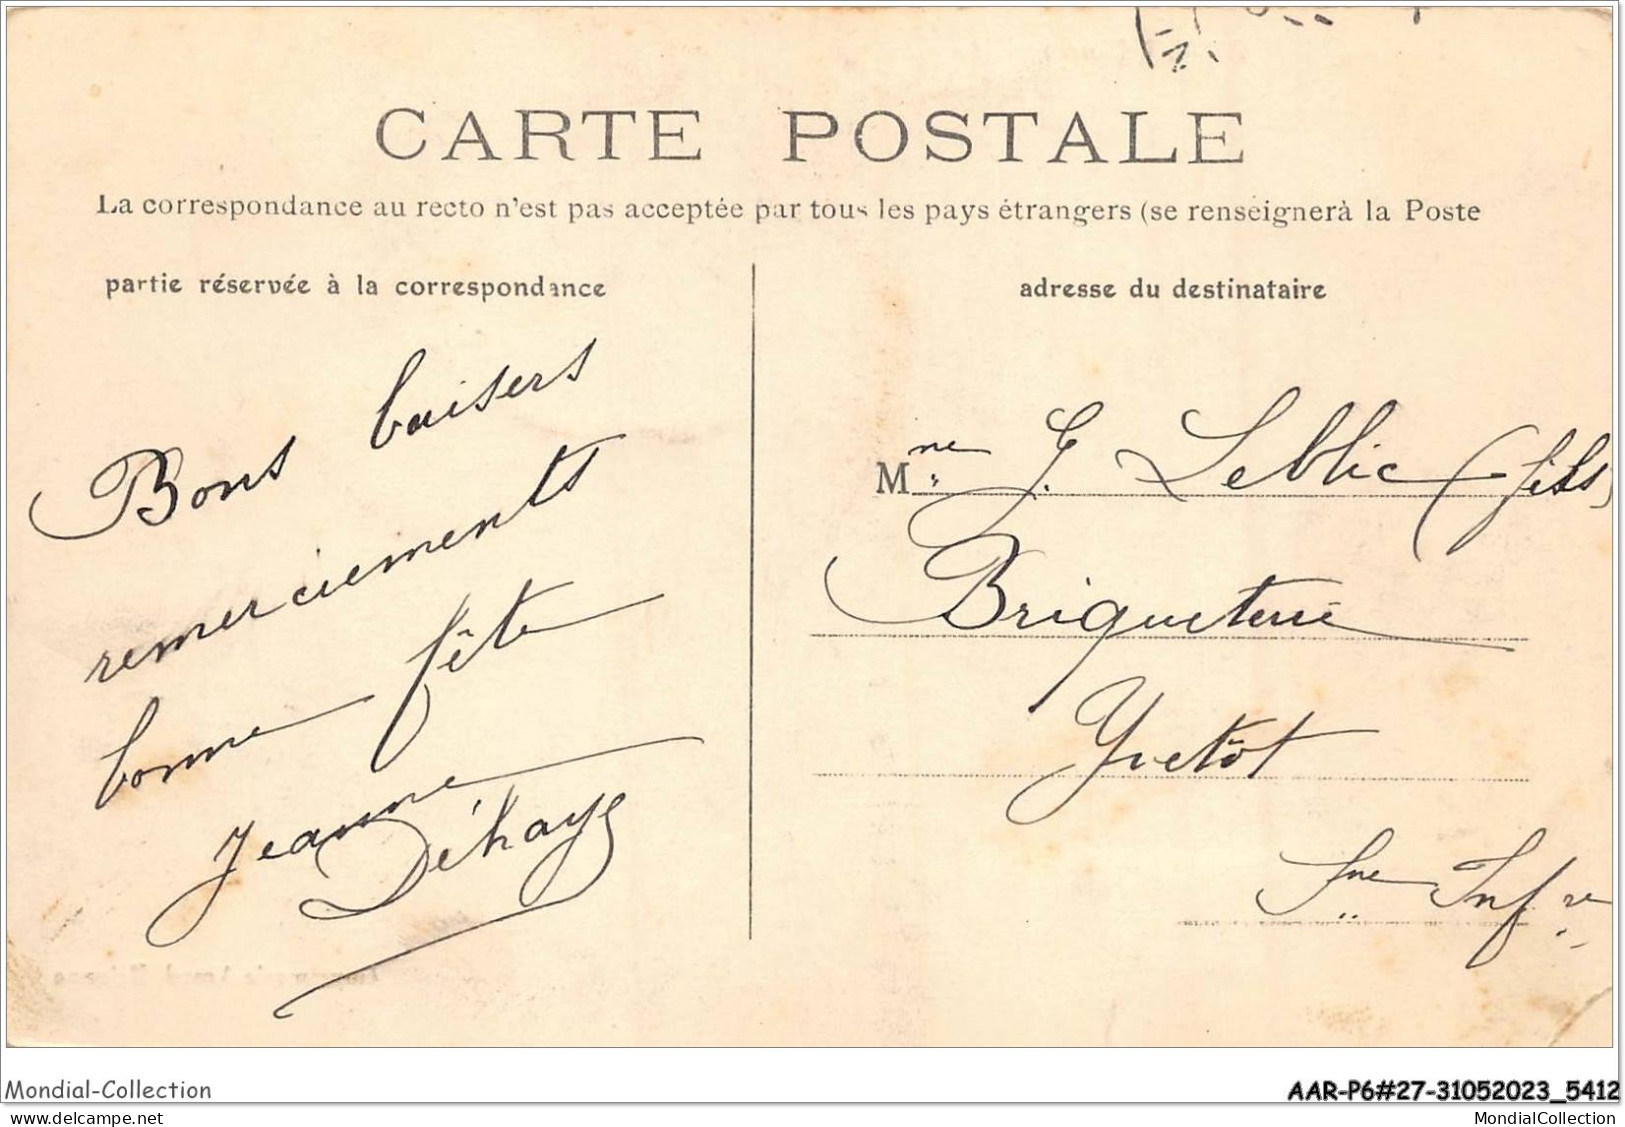 CARTE POSTALE
La correspondance au recto n'est pas acceptée par tous les pays étrangers (se renseignerà la Poste
partie réservée à la correspondance
adresse du destinataire
Bons baisers
remerciements
bonne fête
Jeanne
Déhays
Mme J. Leblic (fils)
Briqueterie
Yvetôt
Sne Infre
Mondial-Collection
AAR-P6#27-31052023_5412
www.delcampe.net
MondialCollection